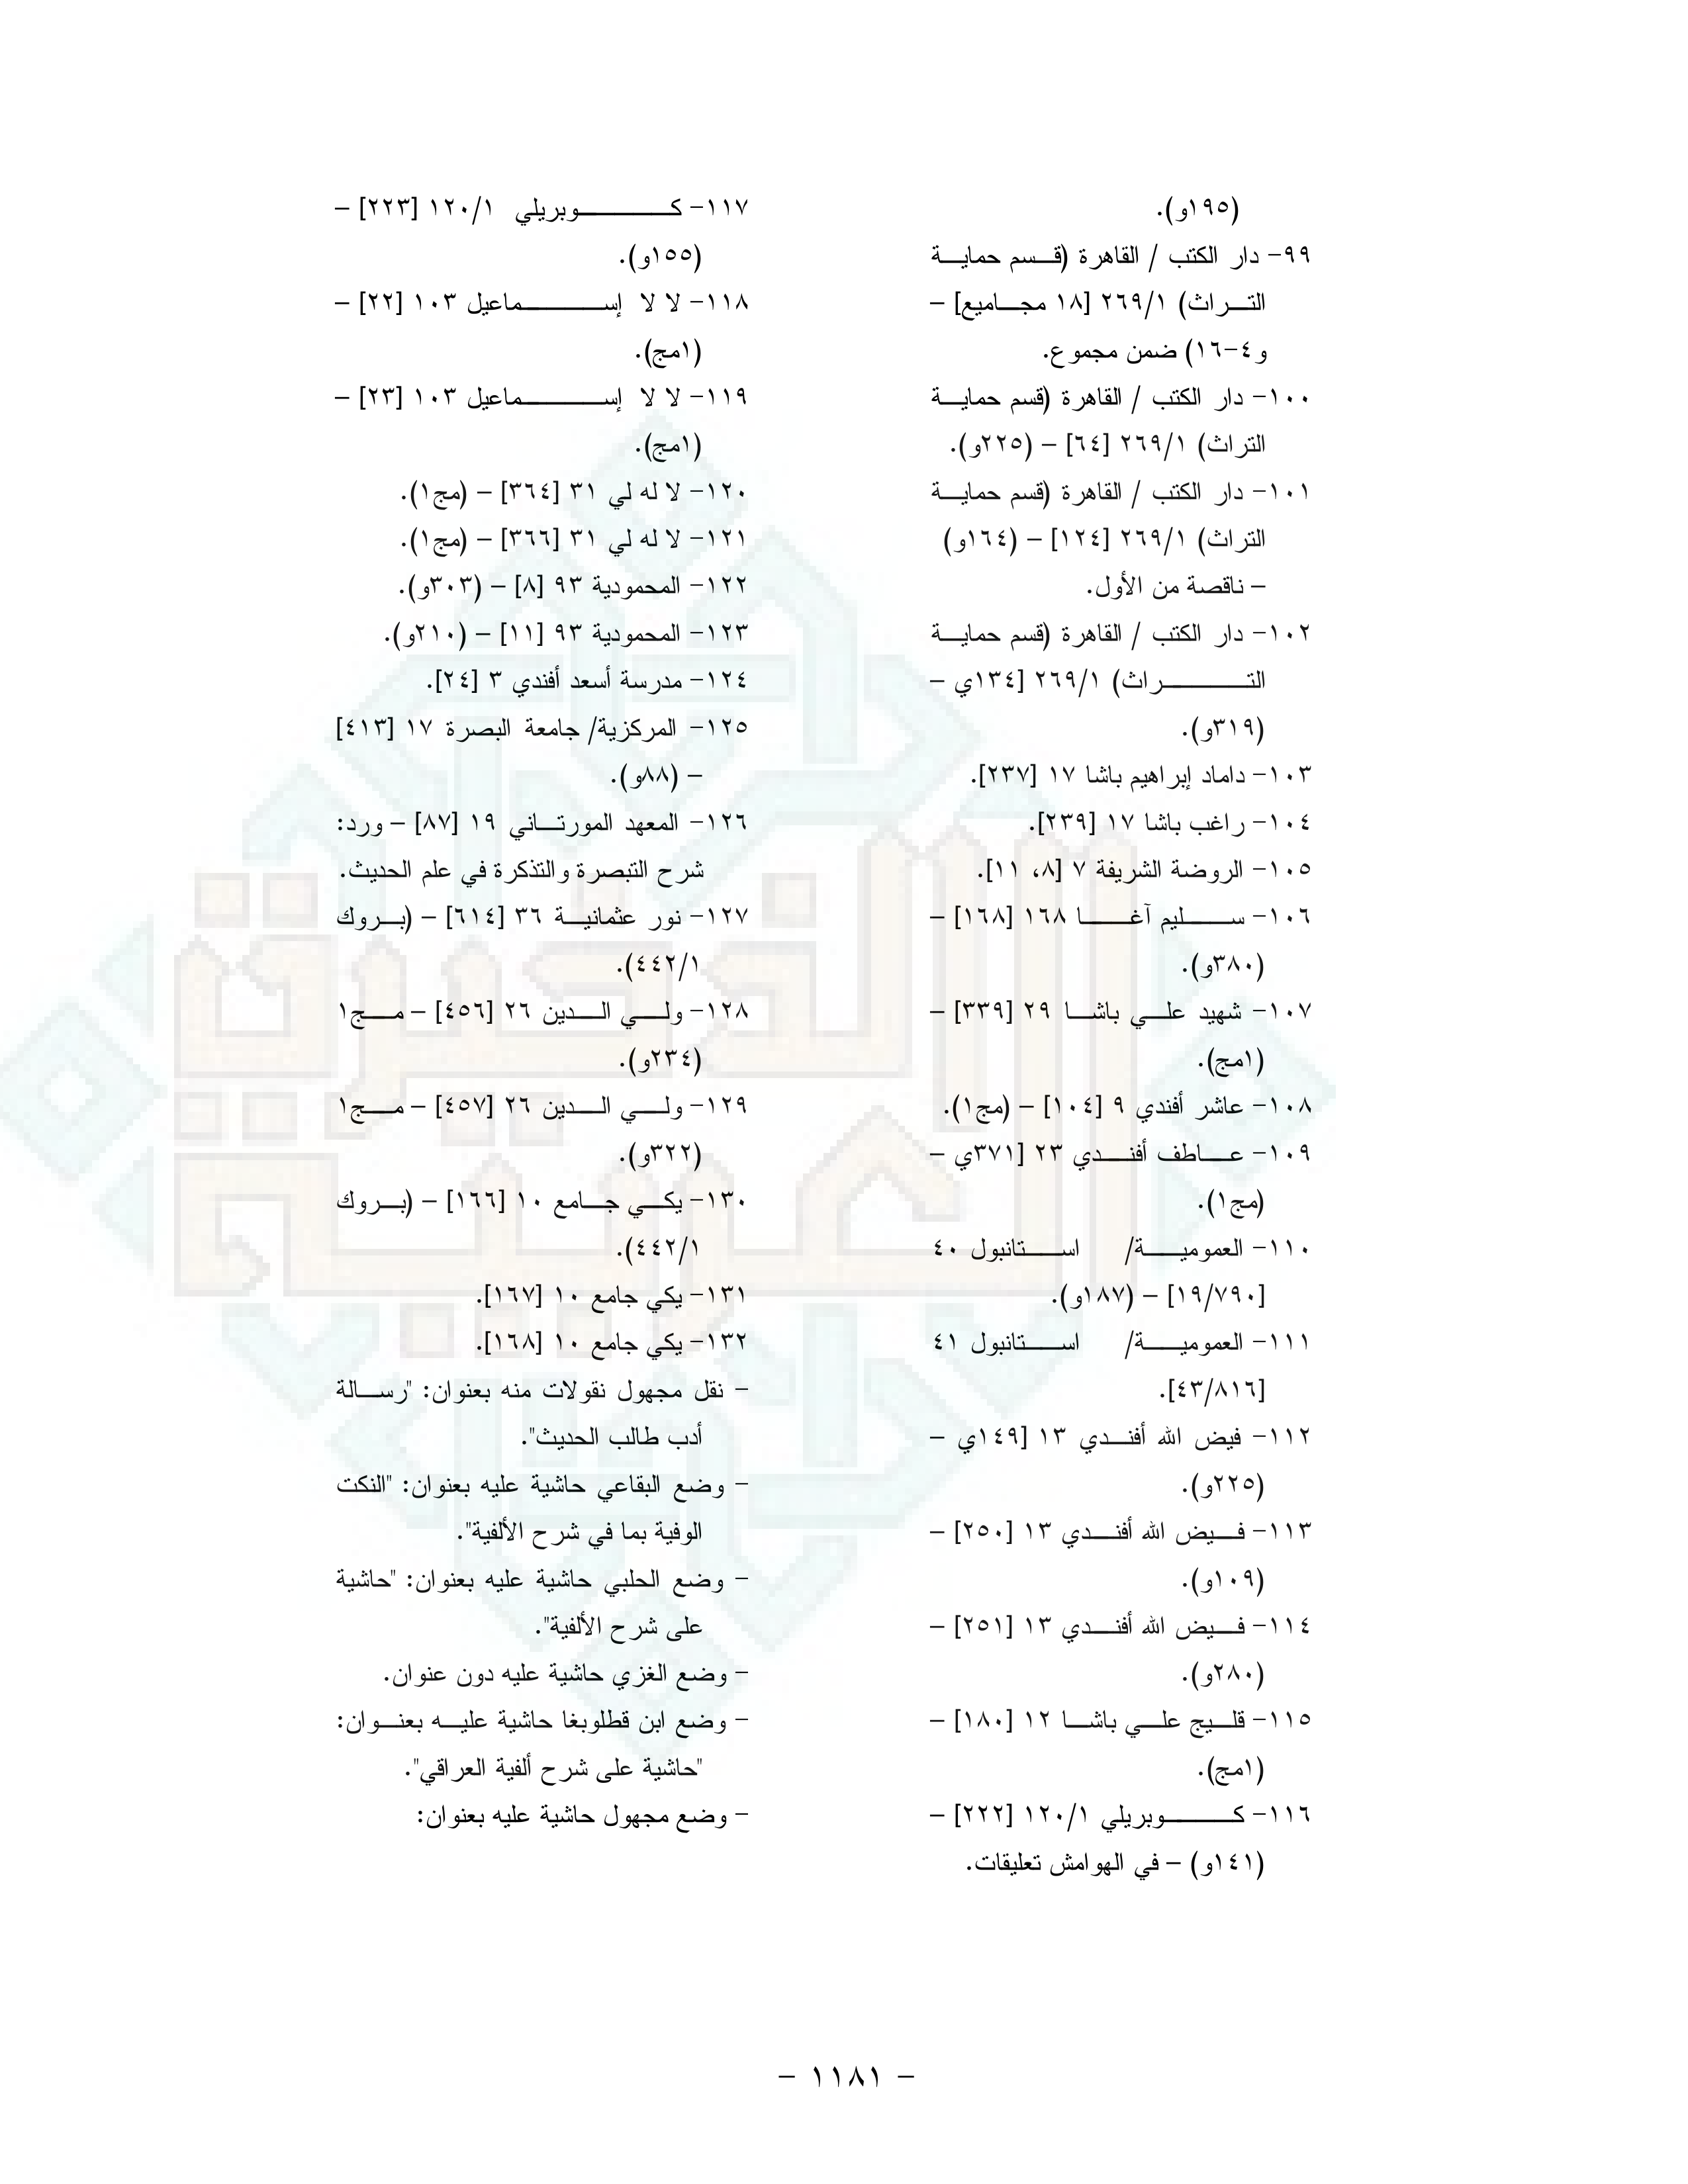 (١٩٥و).
٩٩- دار الكتب / القاهرة (قسم حماية
التراث) ٢٦٩/١ [١٨ مجاميع] –
و٤-١٦) ضمن مجموع.
١٠٠- دار الكتب / القاهرة (قسم حماية
التراث) ٢٦٩/١ [٦٤] – (٢٢٥و).
١٠١- دار الكتب / القاهرة (قسم حماية
التراث) ٢٦٩/١ [١٢٤] – (١٦٤و)
– ناقصة من الأول.
١٠٢- دار الكتب / القاهرة (قسم حماية
التراث) ٢٦٩/١ [١٣٤ي –
(٣١٩و).
١٠٣- داماد إبراهيم باشا ١٧ [٢٣٧].
١٠٤- راغب باشا ١٧ [٢٣٩].
١٠٥- الروضة الشريفة ٧ [٨، ١١].
١٠٦- سليم آغا ١٦٨ [١٦٨] –
(٣٨٠و).
١٠٧- شهيد علي باشا ٢٩ [٣٣٩] –
(١مج).
١٠٨- عاشر أفندي ٩ [١٠٤] – (مج١).
١٠٩- عاطف أفندي ٢٣ [٣٧١ي –
(مج١).
١١٠- العمومية/ استانبول ٤٠
[١٩/٧٩٠] – (١٨٧و).
١١١- العمومية/ استانبول ٤١
[٤٣/٨١٦].
١١٢- فيض الله أفندي ١٣ [١٤٩ي –
(٢٢٥و).
١١٣- فيض الله أفندي ١٣ [٢٥٠] –
(١٠٩و).
١١٤- فيض الله أفندي ١٣ [٢٥١] –
(٢٨٠و).
١١٥- قليج علي باشا ١٢ [١٨٠] –
(١مج).
١١٦- كوبريلي ١٢٠/١ [٢٢٢] –
(١٤١و) – في الهوامش تعليقات.
١١٧- كوبريلي ١٢٠/١ [٢٢٣] –
(١٥٥و).
١١٨- لا لا إسماعيل ١٠٣ [٢٢] –
(١مج).
١١٩- لا لا إسماعيل ١٠٣ [٢٣] –
(١مج).
١٢٠- لا له لي ٣١ [٣٦٤] – (مج١).
١٢١- لا له لي ٣١ [٣٦٦] – (مج١).
١٢٢- المحمودية ٩٣ [٨] – (٣٠٣و).
١٢٣- المحمودية ٩٣ [١١] – (٢١٠و).
١٢٤- مدرسة أسعد أفندي ٣ [٢٤].
١٢٥- المركزية/ جامعة البصرة ١٧ [٤١٣]
– (٨٨و).
١٢٦- المعهد المورتاني ١٩ [٨٧] – ورد:
شرح التبصرة والتذكرة في علم الحديث.
١٢٧- نور عثمانية ٣٦ [٦١٤] – (بروك
٤٤٢/١).
١٢٨- ولي الدين ٢٦ [٤٥٦] – مج١
(٢٣٤و).
١٢٩- ولي الدين ٢٦ [٤٥٧] – مج١
(٣٢٢و).
١٣٠- يكي جامع ١٠ [١٦٦] – (بروك
٤٤٢/١).
١٣١- يكي جامع ١٠ [١٦٧].
١٣٢- يكي جامع ١٠ [١٦٨].
– نقل مجهول نقولات منه بعنوان: "رسالة
أدب طالب الحديث".
– وضع البقاعي حاشية عليه بعنوان: "النكت
الوفية بما في شرح الألفية".
– وضع الحلبي حاشية عليه بعنوان: "حاشية
على شرح الألفية".
– وضع الغزي حاشية عليه دون عنوان.
– وضع ابن قطلوبغا حاشية عليه بعنوان:
"حاشية على شرح ألفية العراقي".
– وضع مجهول حاشية عليه بعنوان:
– ١١٨١ –